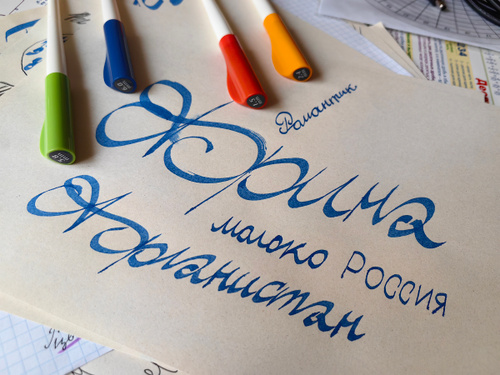 Романтик
Арина
молоко Россия
Афганистан